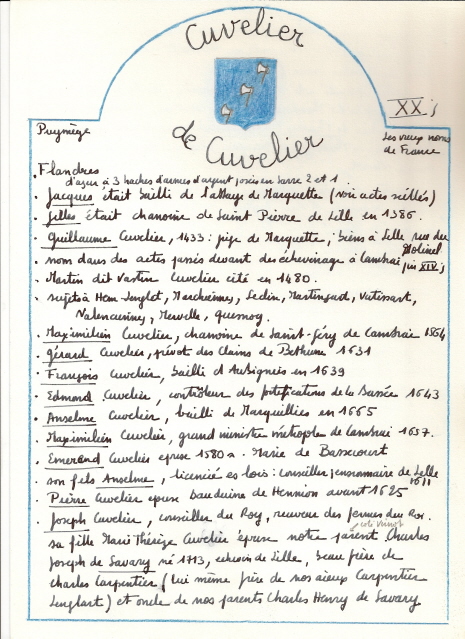 Cuvelier
XX s
Puymège
Les vieux noms
de France
de Cuvelier
. Flandres
d'azur à 3 haches d'armes d'argent posées en barre 2 et 1.
. Jacques était bailli de l'abbaye de Marquette (voir actes scellés)
. Gilles était chanoine de Saint Pierre de Lille en 1386.
. Guillaume Cuvelier, 1433: juge de Marquette, biens à Lille rue du Molinel
. nom dans des actes passés devant des échevinage à Cambrai fin XIV s
. Martin dit Vartin Cuvelier cité en 1480.
. sujets à Hem-Lenglet, Marchiennes, Seclin, Martinsart, Vatissart,
Valenciennes, Merville, Quesnoy.
. Maximilien Cuvelier, chanoine de Saint-Géry de Cambrai
. Gérard Cuvelier, prévot des Clains de Béthune 1631
. François Cuvelier, bailli d'Aubigné en 1639
. Edmond Cuvelier, contrôleur des fortifications de la Bassée 1643
. Anselme Cuvelier, bailli de Marquillies en 1665
. Maximilien Cuvelier, grand ministre métropole de Cambrai 1657.
. Emerand Cuvelier épuse 1580 Marie de Bassecourt
. son fils Anselme, licencié es lois: conseiller pensionnaire de Lille 1611
. Pierre Cuvelier epuse Bauduine de Hennion avant 1625
. Joseph Cuvelier, conseiller du Roy, receveur des fermes du Roi.
sa fille Marie Thérèze Cuvelier épuse notre parent Charles
Joseph de Savary né 1713, echevin de Lille, beau frère de
Charles Carpentier (lui même frère de nos aïeux Carpentier
Lenglart) et oncle de nos parents Charles Henry de Savary